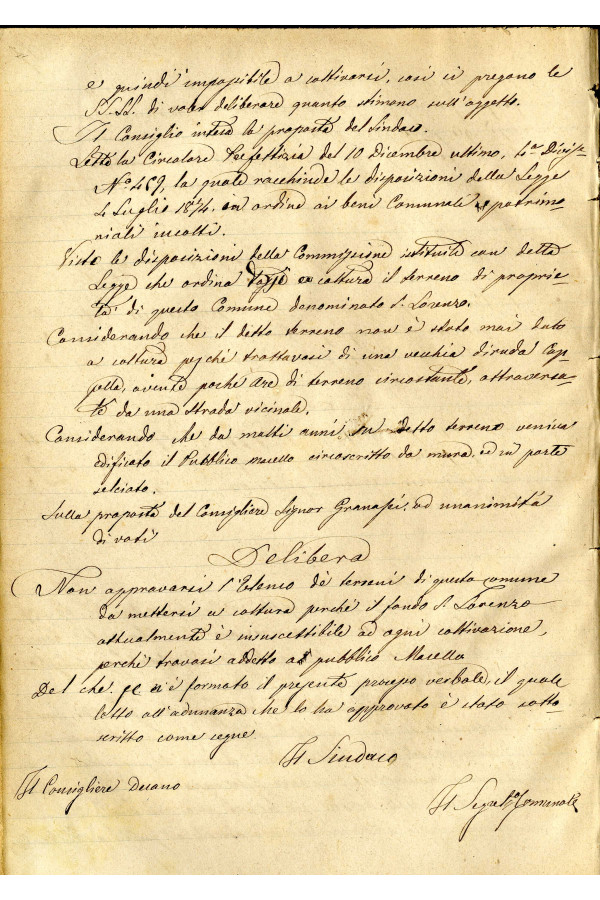 e quindi impossibile a coltivarsi, così si pregano le
SS. LL. di voler deliberare quanto stimono sull'oggetto.
Il Consiglio intesa la proposta del Sindaco.
Letta la Circolare Prefettizia del 10 Dicembre ultimo, 4ª Divis.
Nº 459, la quale racchiude le disposizioni della Legge
4 Luglio 1874, in ordine ai beni Comunali patrimo-
niali incolti.
Visto le disposizioni della Commissione instituita con detta
Legge che ordina a coltura il terreno di proprie-
tà di questo Comune denominato S. Lorenzo.
Considerando che il detto terreno non è stato mai dato
a coltura perchè trattavasi di una vecchia diruda Cap-
pella, avente poche are di terreno circostante, attraversa-
te da una strada vicinale.
Considerando che da molti anni su detto terreno veniva
edificato il Pubblico macello circoscritto da mura, ed in parte
selciato.
Sulla proposta del Consigliere Signor Granafei, ad unanimità
di voti
Delibera
Non approvarsi l'Elenco dè terreni di questo comune
da mettersi a coltura perchè il fondo S. Lorenzo
attualmente è insuscettibile ad ogni coltivazione,
perchè trovasi addetto a pubblico Macello
Del che se n'è formato il presente processo verbale, il quale
letto all'adunanza che lo ha approvato è stato sotto-
scritto come segue.
Il Sindaco
Il Consigliere Decano
Il Segret.º Comunale